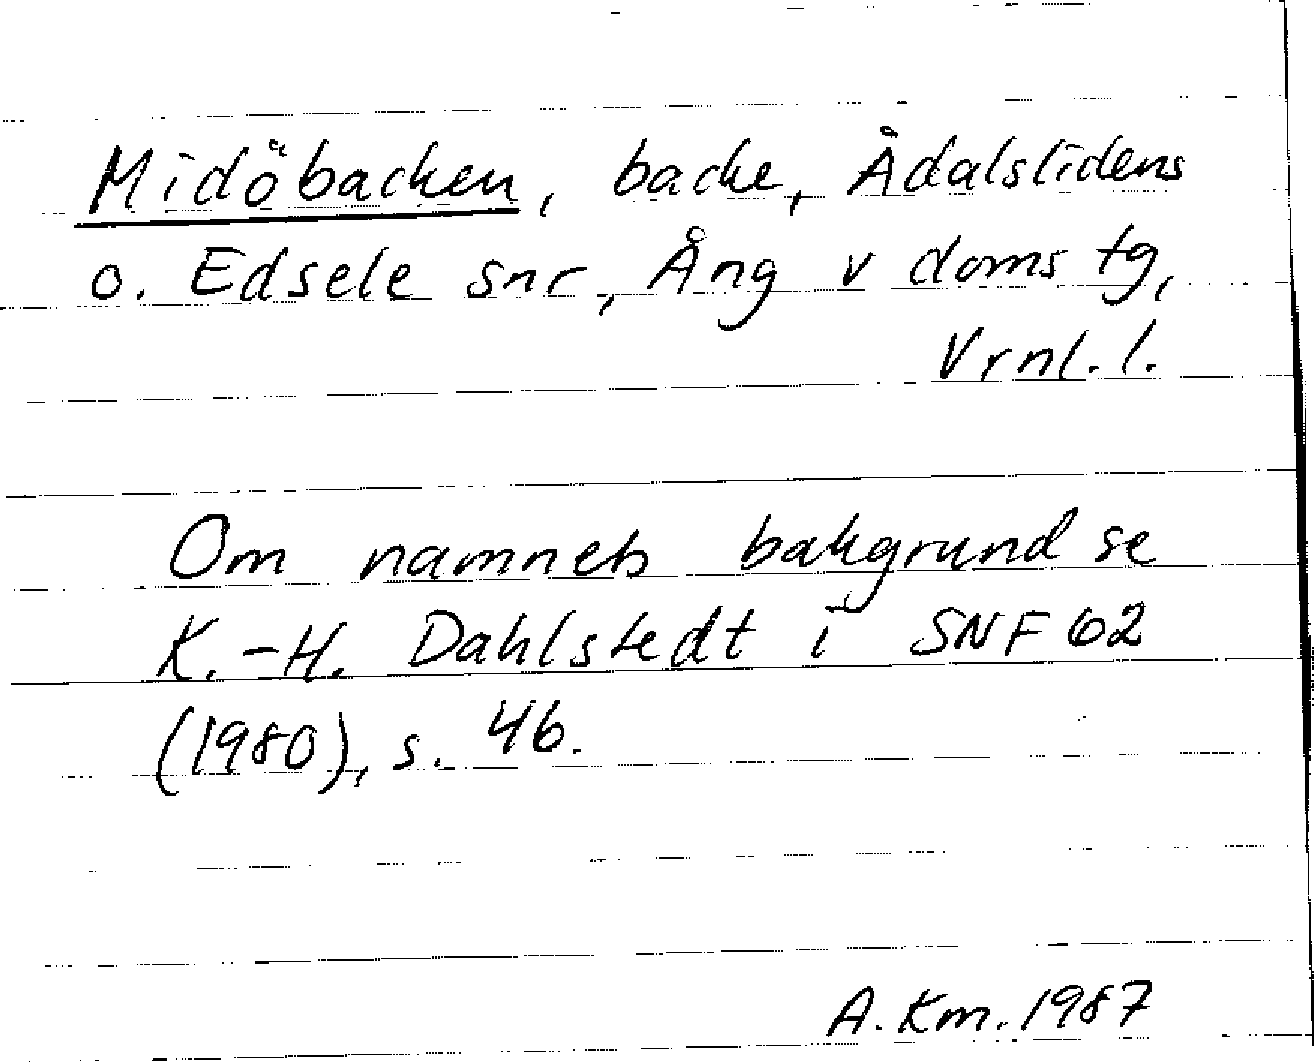 Midöbacken, backe, Ådalslidens
o. Edsele snr, Ång v doms tg,
Vrnl. l.
Om namnets bakgrund se
K.-H. Dahlstedt i SNF 62
(1980), s. 46.
A. Km. 1987